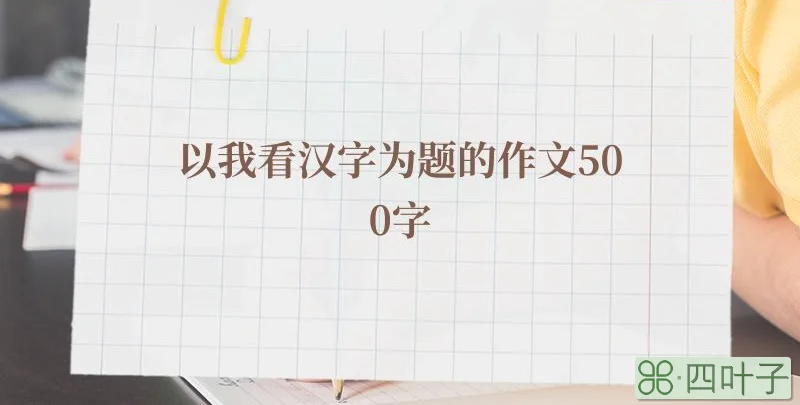 以我看汉字为题的作文50
0字
四叶子